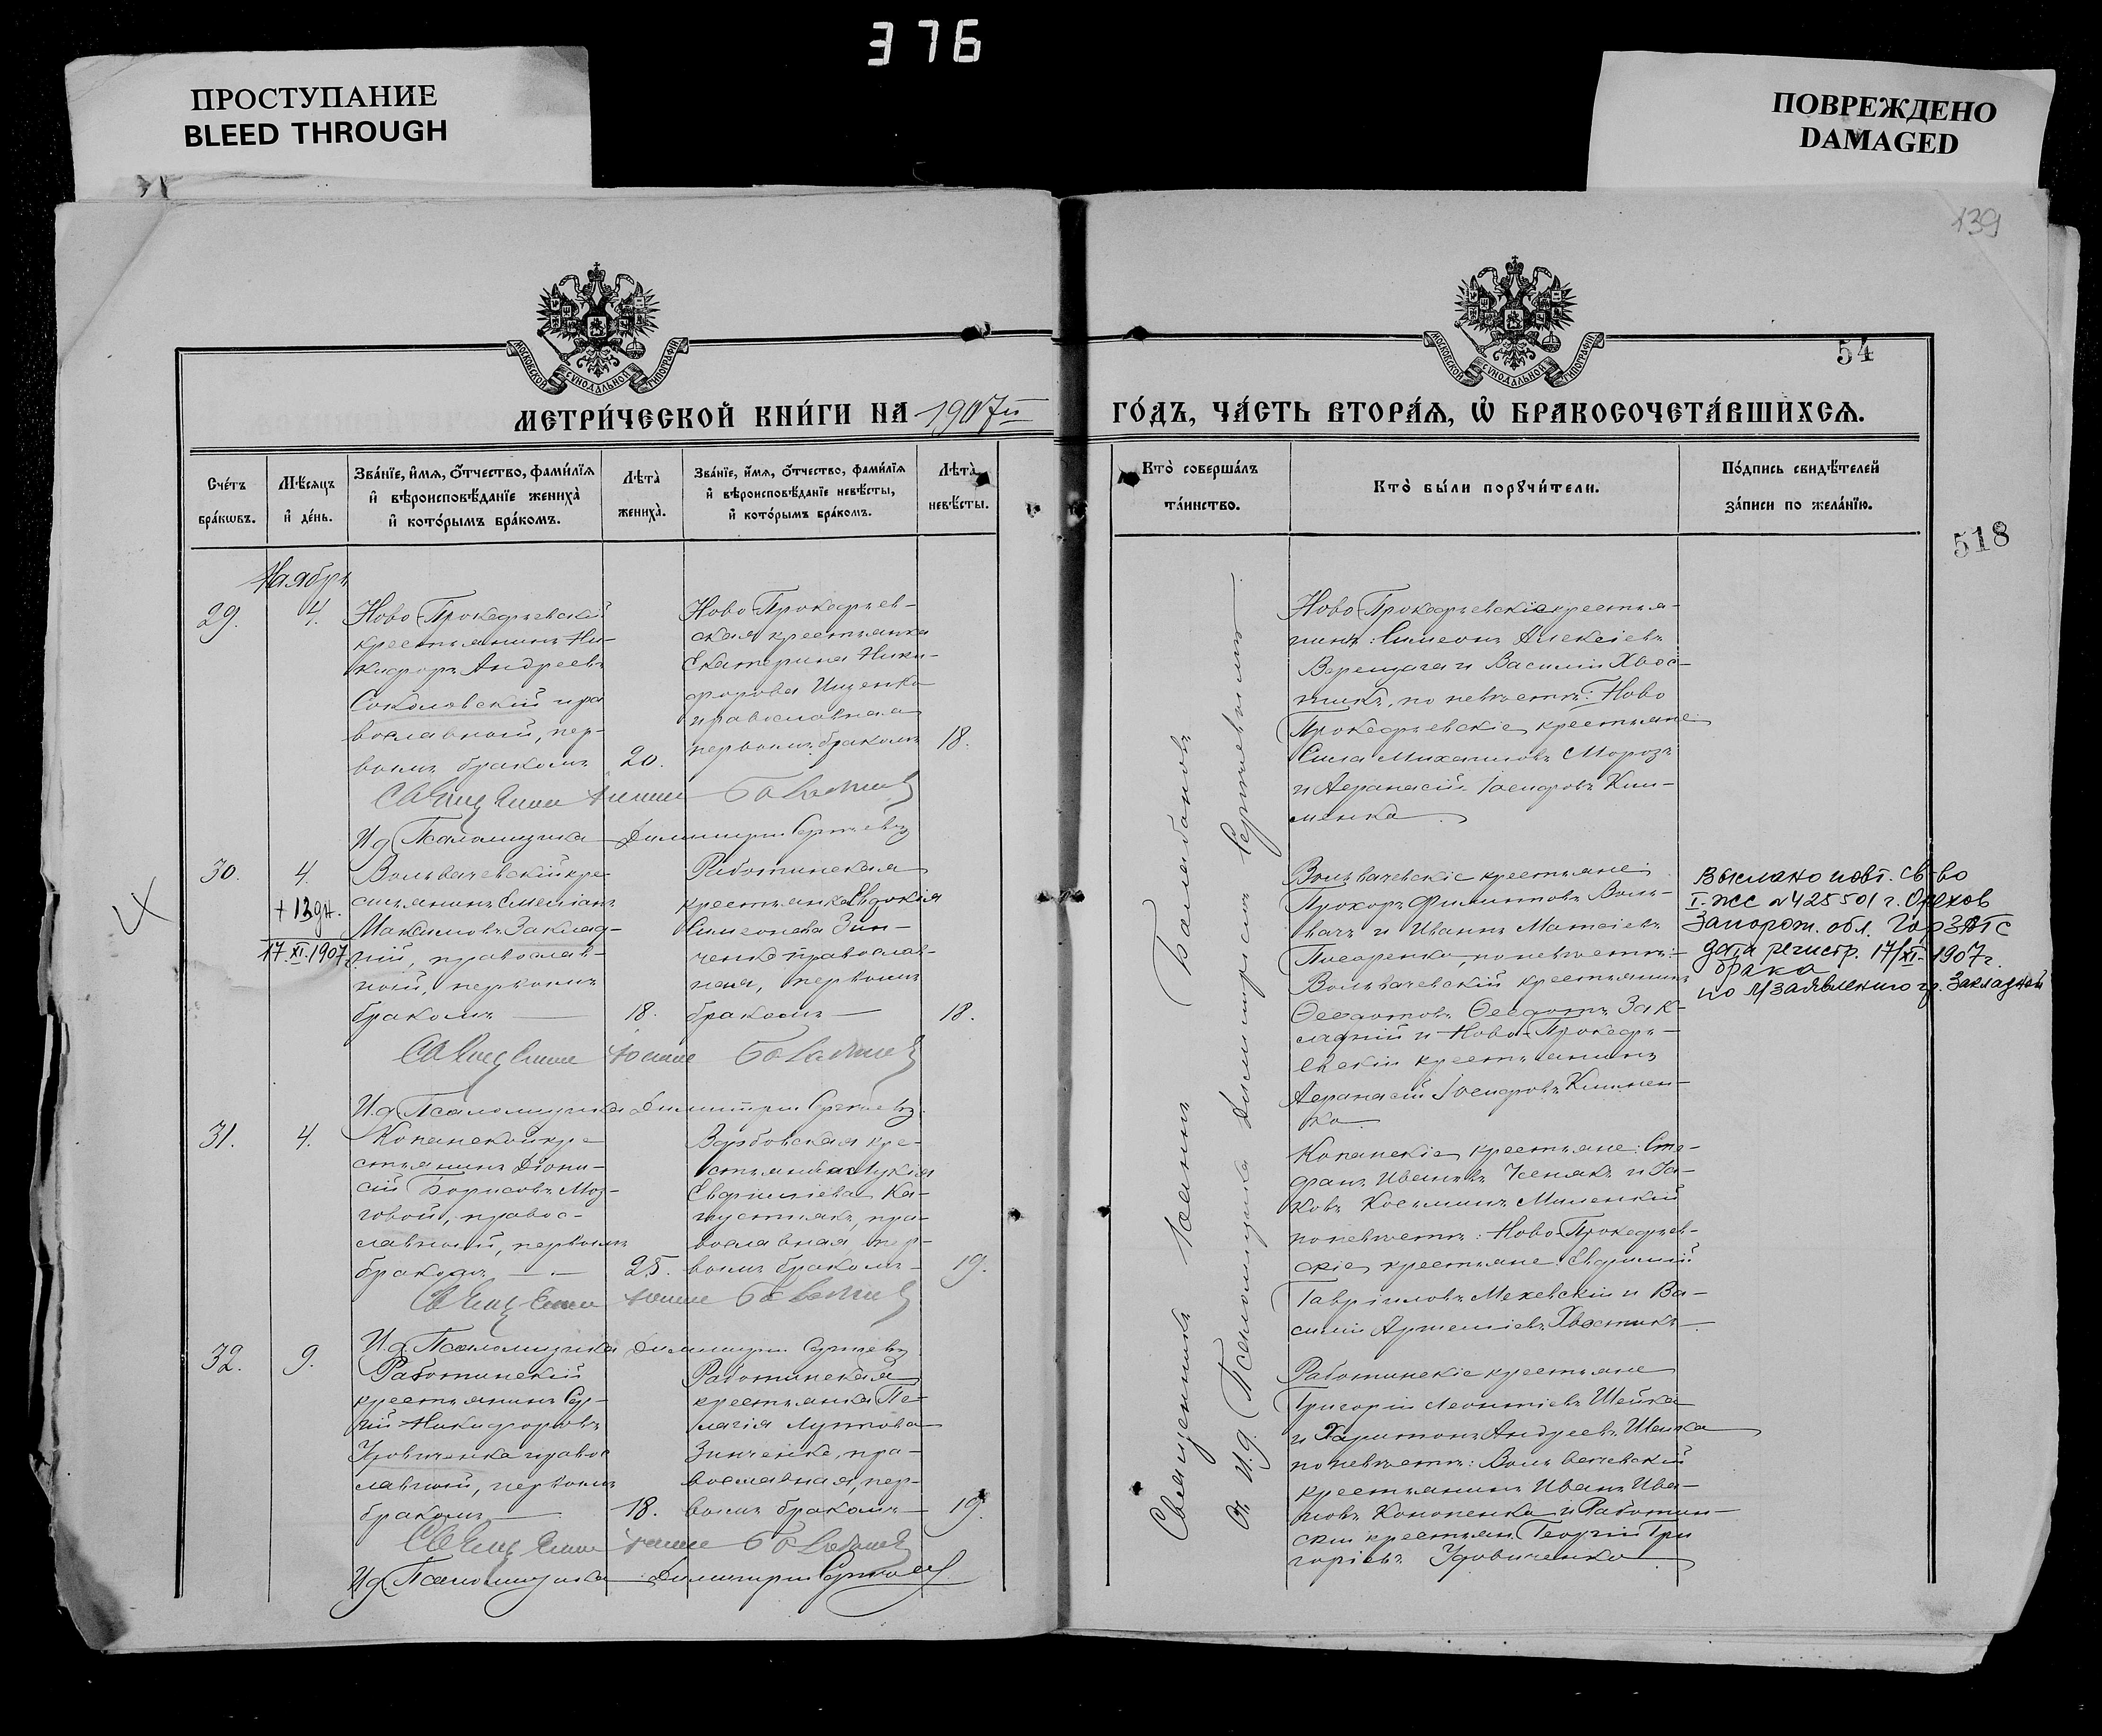 376
ПРОСТУПАНИЕ
BLEED THROUGH
ПОВРЕЖДЕНО
DAMAGED
139
54
518
МОСКОВСКОЙ СѴНОДАЛЬНОЙ ТИПОГРАФІИ
МОСКОВСКОЙ СѴНОДАЛЬНОЙ ТИПОГРАФІИ
МЕТРИ́ЧЕСКОЙ КНИ́ГИ НА 1907й
ГО́ДЪ, ЧА́СТЬ ВТОРА́Я, Ѡ҆ БРАКОСОЧЕТА́ВШИХСѦ.
Сче́тъ бра́кѡвъ.
Мѣ́сяцъ и҆ де́нь.
Зва́нїе, и҆́мѧ, ѻ҆́тчество, фами́лїѧ и҆ вѣроисповѣ́данїе жениха̀ и҆ кото́рымъ бра́комъ.
Лѣта̀ жениха̀.
Зва́нїе, и҆́мѧ, ѻ҆́тчество, фами́лїѧ и҆ вѣроисповѣ́данїе невѣ́сты, и҆ кото́рымъ бра́комъ.
Лѣта̀ невѣ́сты.
Кто̀ соверша́лъ та́инство.
Кто̀ бы́ли порꙋчи́тели.
По́дпись свидѣ́телей за́писи по жела́нїю.
Ноябрь
29.
4.
Ново Прокофьевскій
крестьянинъ Ни-
кифоръ Андреевъ
Соколовскій пра
вославный, пер-
вымъ бракомъ
20.
Ново Прокофьев-
ская крестьянка
Екатерина Ники-
форова Ищенко
православная
первымъ бракомъ
18.
Ново Прокофьевскіе крестья-
нинъ: Симеонъ Алексіевъ
Верещага и Василій Хвос-
тикъ, по невѣстѣ: Ново
Прокофьевскіе крестьяне
Сила Михаиловъ Морозъ
и Аѳанасій Іосифовъ Кли-
менко
И д Псаломщика Димитрій Сергіевъ
30.
4.
+ 13 дн.
17.XI.1907
крестьянинъ
Максимовъ Заклад-
ній, православ-
ный, первымъ
бракомъ
18.
Работинская
крестьянка Евдокія
Симеонова Зин-
ченко православ-
ная, первымъ
бракомъ
18.
крестьяне
Прохоръ Филиповъ Воль-
вачъ и Иванъ Матѳіевъ
Писаренко, по невѣстѣ:
Вольвачевскій крестьянинъ
Ѳеодотовъ Зак-
ладній и Ново-Прокофь-
евскій крестьянинъ
Аѳанасій Іосифовъ Климен-
ко
Выслано повт. св-во
I-ЖС №425501 г. Орехов
Запорож. обл. ГорЗАГС
дата регистр. 17/XI-1907г.
брака
по заявлению гр. Закладной
И д Псаломщика Димитрій Сергіевъ
31.
4.
Копанскій кре-
стьянинъ Діони-
сій Борисовъ Моз-
говой, правос-
лавный, первымъ
бракомъ
25.
Вербовская кре-
стьянка Лукія
Евфиміева Ка-
пустякъ, пра-
вославная, пер-
вымъ бракомъ
19.
Копанскіе крестьяне: Сте-
фанъ Ивановъ и Іа-
ковъ Космичъ Миленкій
по невѣстѣ: Ново-Прокофьев-
скіе крестьяне Евфимій
Гавріиловъ Мехевскій и Ва-
силій Артеміевъ Хвостикъ
И.д. Псаломщика Димитрій Сергіевъ
32.
9.
Работинскій
крестьянинъ Сер-
гій Никифоровъ
Удовиченко правос
лавный, первымъ
бракомъ
18.
Работинская
крестьянка Пе-
лагія Луппова
Зинченко, пра-
вославная, пер-
вымъ бракомъ
19.
Работинскіе крестьяне
Григорій Леонтіевъ Шейка
и Харитонъ Андреевъ Шейка
по невѣстѣ: Вольвачевскій
крестьянинъ Иванъ Ива-
новъ Кононенко и Работин-
скій крестьян. Георгій Гри
горіевъ Удовиченко
И д Псаломщика Димитрій Сергіевъ
Священникъ Іоаннъ Балабановъ
И.д. Псаломщика Димитрій Сергіевъ